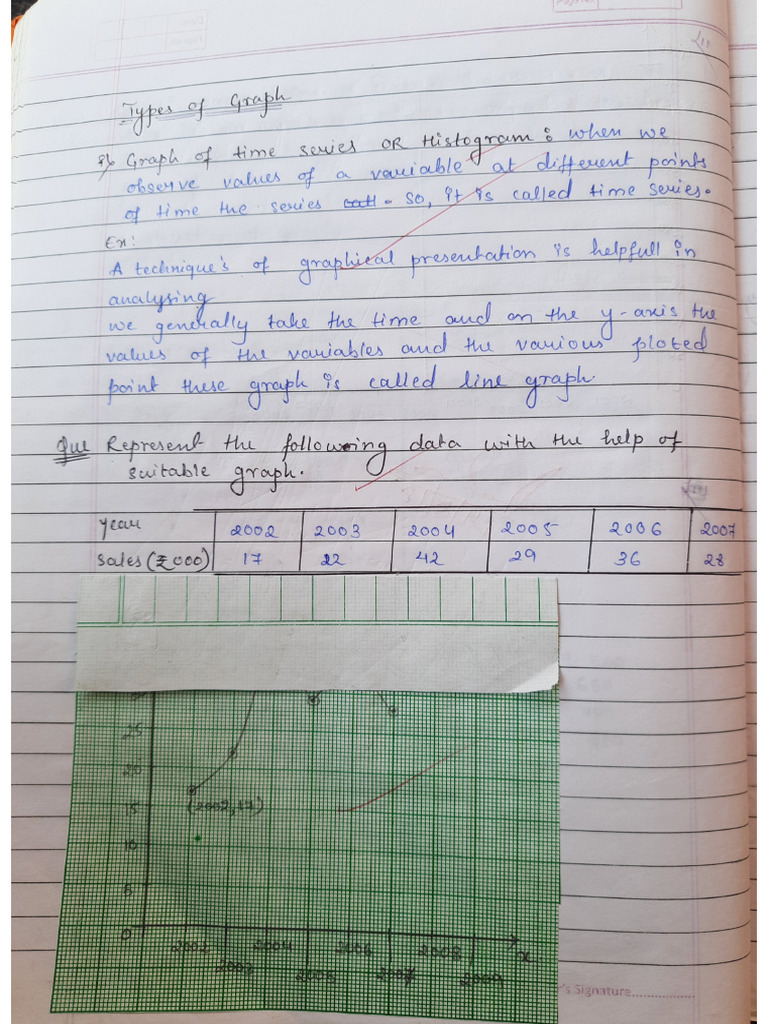 Types of Graph
Graph of time series OR Histogram : when we
observe values of a variable at different points
of time the series so, it is called time series.
Ex:
A technique's of graphical presentation is helpfull in
analysing
we generally take the time and on the y-axis the
values of the variables and the various ploted
point these graph is called line graph.
Que Represent the following data with the help of
suitable graph.
year 2002 2003 2004 2005 2006 2007
Sales (₹000) 17 22 42 29 36 28
25
20
(2002,17)
15
10
5
0
2002 2004 2006 2008 x
2003 2005 2007 2009
's Signature